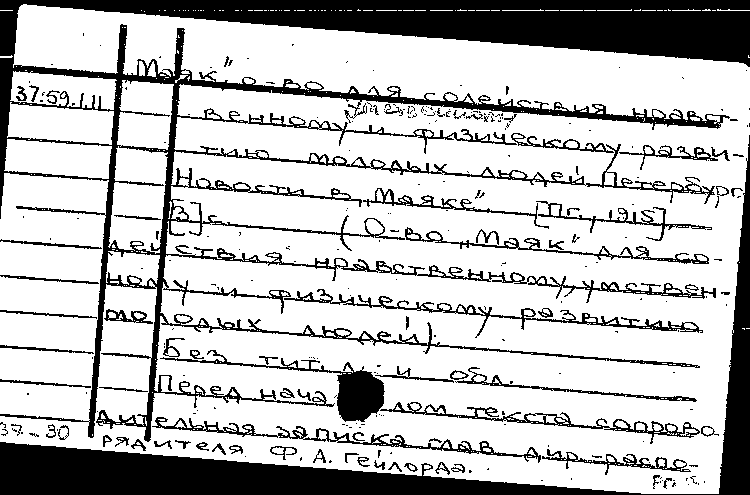 „Маяк", о-во для содействия нравст-
умственному
37:59.1.11
венному и физическому разви-
тию молодых людей. Петербург
Новости в „Маяке". [Пг., 1915].
[3] с. (О-во „Маяк" для со-
действия нравственному, умствен-
ному и физическому развитию
молодых людей).
Без тит. л. и обл.
Перед началом текста сопрово
дительная записка глав. дир.-распо-
37-30
рядителя Ф. А. Гейлорда.